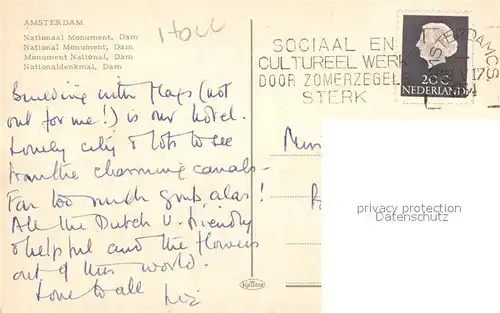 AMSTERDAM
Nationaal Monument, Dam
National Monument, Dam
Monument National, Dam
Nationaldenkmal, Dam
Holl
SOCIAAL EN
CULTUREEL WERK
DOOR ZOMERZEGELS
STERK
AMSTERDAM C.S.
17
20 c
NEDERLAND
Building with flags (not
out for me!) is our hotel.
Lovely city & lots to see
from the charming canals –
Far too much grub, alas!
All the Dutch v. friendly
& helpful and the flowers
out of this world.
Love to all
privacy protection
Datenschutz